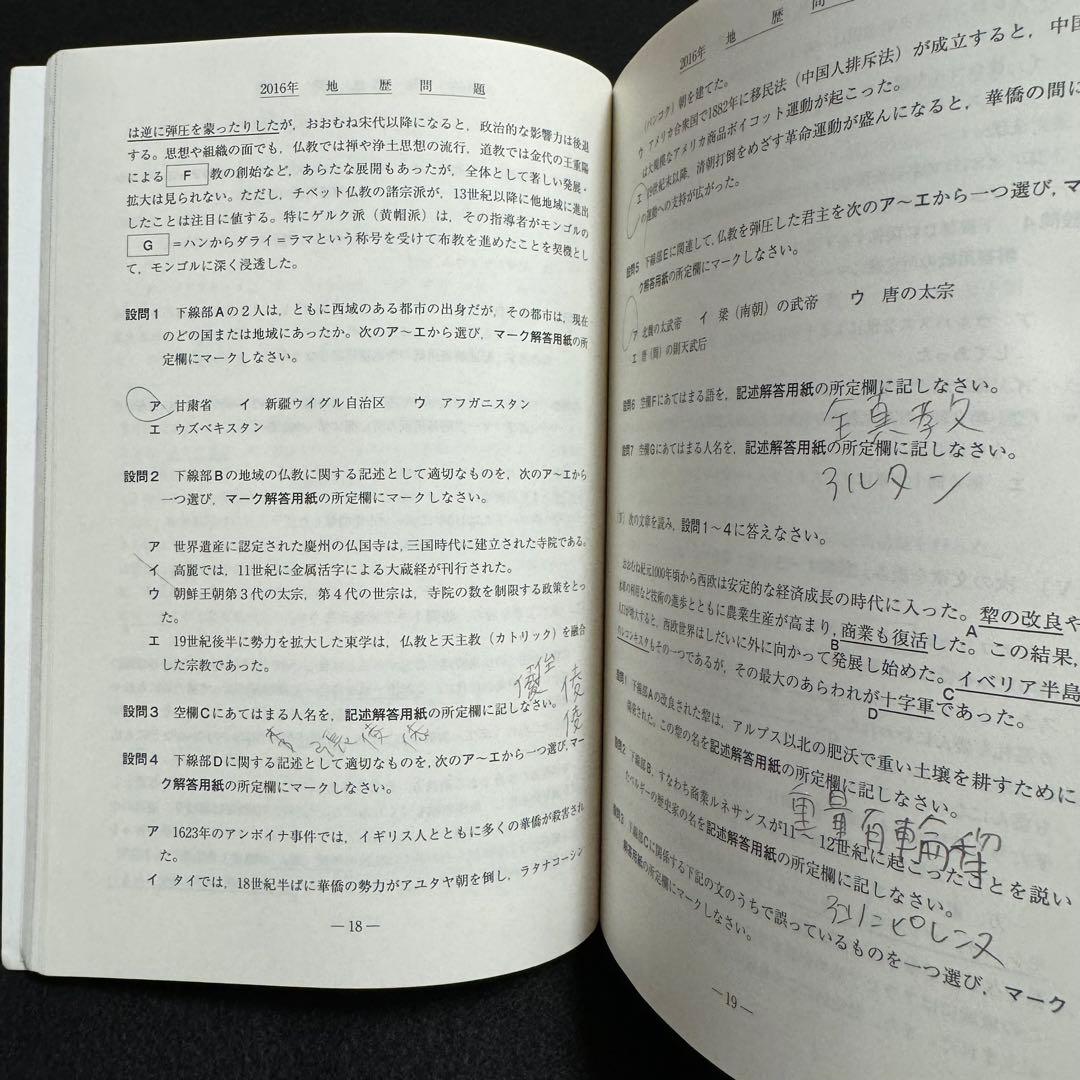 2016年 地 歴 問 題
は逆に弾圧を蒙ったりしたが，おおむね宋代以降になると，政治的な影響力は後退
する。思想や組織の面でも，仏教では禅や浄土思想の流行，道教では金代の王重陽
による F 教の創始など，あらたな展開もあったが，全体として著しい発展・
拡大は見られない。ただし，チベット仏教の諸宗派が，13世紀以降に他地域に進出
したことは注目に値する。特にゲルク派（黄帽派）は，その指導者がモンゴルの
G ＝ハンからダライ＝ラマという称号を受けて布教を進めたことを契機とし
て，モンゴルに深く浸透した。
設問1 下線部Aの2人は，ともに西域のある都市の出身だが，その都市は，現在
のどの国または地域にあったか。次のア～エから選び，マーク解答用紙の所
定欄にマークしなさい。
ア 甘粛省 イ 新疆ウイグル自治区 ウ アフガニスタン
エ ウズベキスタン
設問2 下線部Bの地域の仏教に関する記述として適切なものを，次のア～エから
一つ選び，マーク解答用紙の所定欄にマークしなさい。
ア 世界遺産に認定された慶州の仏国寺は，三国時代に建立された寺院である。
イ 高麗では，11世紀に金属活字による大蔵経が刊行された。
ウ 朝鮮王朝第3代の太宗，第4代の世宗は，寺院の数を制限する政策をとっ
た。
エ 19世紀後半に勢力を拡大した東学は，仏教と天主教（カトリック）を融合
した宗教であった。
設問3 空欄Cにあてはまる人名を，記述解答用紙の所定欄に記しなさい。
設問4 下線部Dに関する記述として適切なものを，次のア～エから一つ選び，マー
ク解答用紙の所定欄にマークしなさい。
ア 1623年のアンボイナ事件では，イギリス人とともに多くの華僑が殺害され
た。
イ タイでは，18世紀半ばに華僑の勢力がアユタヤ朝を倒し，ラタナコーシン
―18―
2016年 地 歴 問
（バンコク）朝を建てた。
ウ アメリカ合衆国で1882年に移民法（中国人排斥法）が成立すると，中国
は大規模なアメリカ商品ボイコット運動が起こった。
エ 19世紀末以降，清朝打倒をめざす革命運動が盛んになると，華僑の間に
の運動への支持が広がった。
設問5 下線部Eに関連して，仏教を弾圧した君主を次のア～エから一つ選び，マ
ク解答用紙の所定欄にマークしなさい。
ア 北魏の太武帝 イ 梁（南朝）の武帝 ウ 唐の太宗
エ 唐（周）の則天武后
設問6 空欄Fにあてはまる語を，記述解答用紙の所定欄に記しなさい。
全真教
設問7 空欄Gにあてはまる人名を，記述解答用紙の所定欄に記しなさい。
アルタン
次の文章を読み，設問1～4に答えなさい。
おおむね紀元1000年頃から西欧は安定的な経済成長の時代に入った。犂の改良や
A
水車の利用など技術の進歩とともに農業生産が高まり，商業も復活した。この結果，
B
人口が増大すると，西欧世界はしだいに外に向かって発展し始めた。イベリア半島
C
のレコンキスタもその一つであるが，その最大のあらわれが十字軍であった。
D
設問1 下線部Aの改良された犂は，アルプス以北の肥沃で重い土壌を耕すために
開発された。この犂の名を記述解答用紙の所定欄に記しなさい。
有輪犂
設問2 下線部B，すなわち商業ルネサンスが11～12世紀に起こったことを説い
たベルギーの歴史家の名を記述解答用紙の所定欄に記しなさい。
ピレンヌ
設問3 下線部Cに関係する下記の文のうちで誤っているものを一つ選び，マーク
解答用紙の所定欄にマークしなさい。
―19―